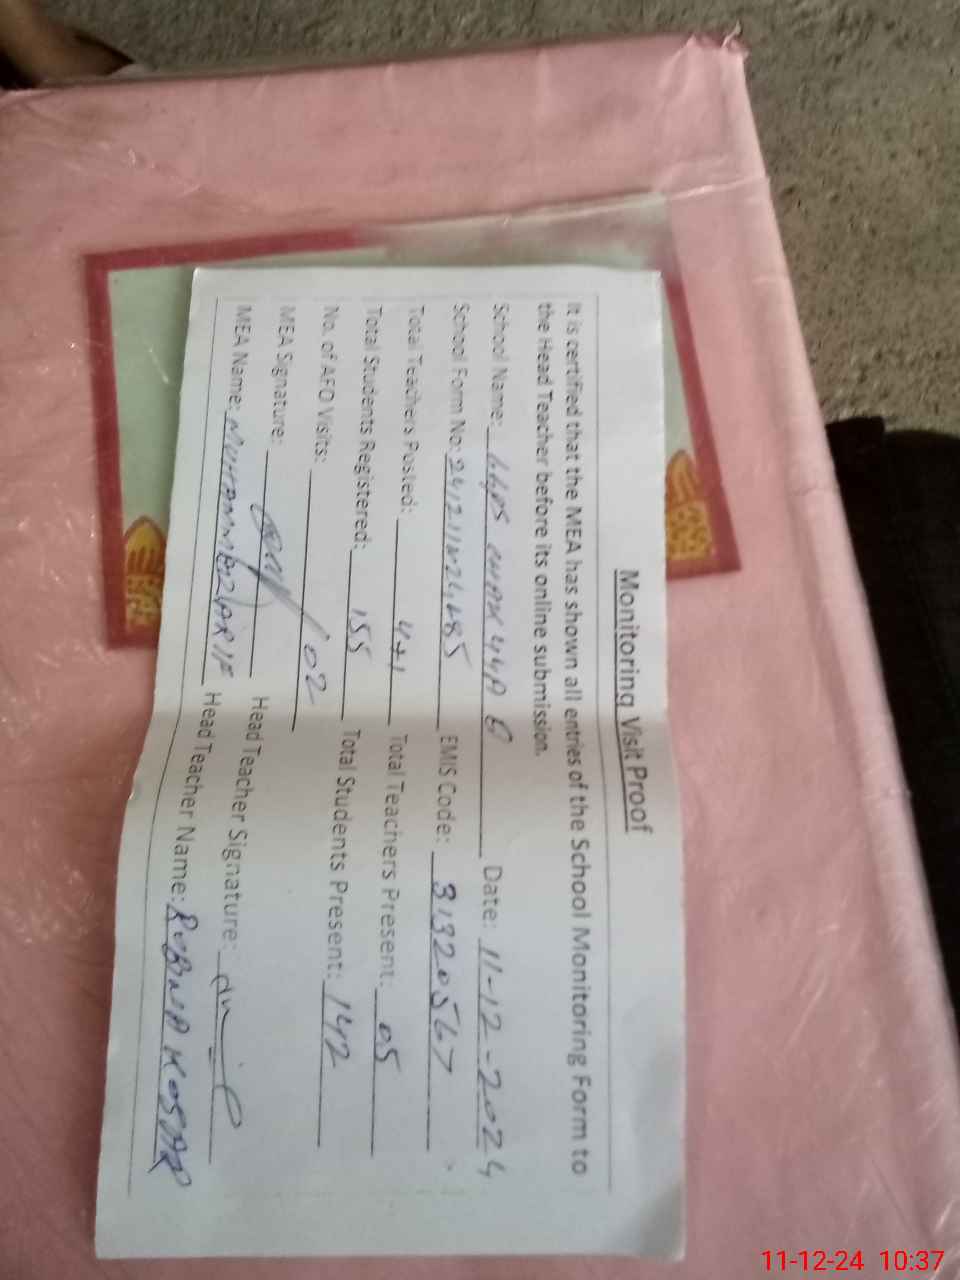 Monitoring Visit Proof
It is certified that the MEA has shown all entries of the School Monitoring Form to
the Head Teacher before its online submission.
School Name: CHAK 44A Date: 11-12-2024
School Form No: EMIS Code: 31320567
Total Teachers Posted: 4+1 Total Teachers Present: 05
Total Students Registered: 155 Total Students Present: 142
No. of AFO Visits: 02
MEA Signature: Head Teacher Signature:
MEA Name: MUHAMMED ARIF Head Teacher Name: RUBNIA KOSAR
11-12-24 10:37